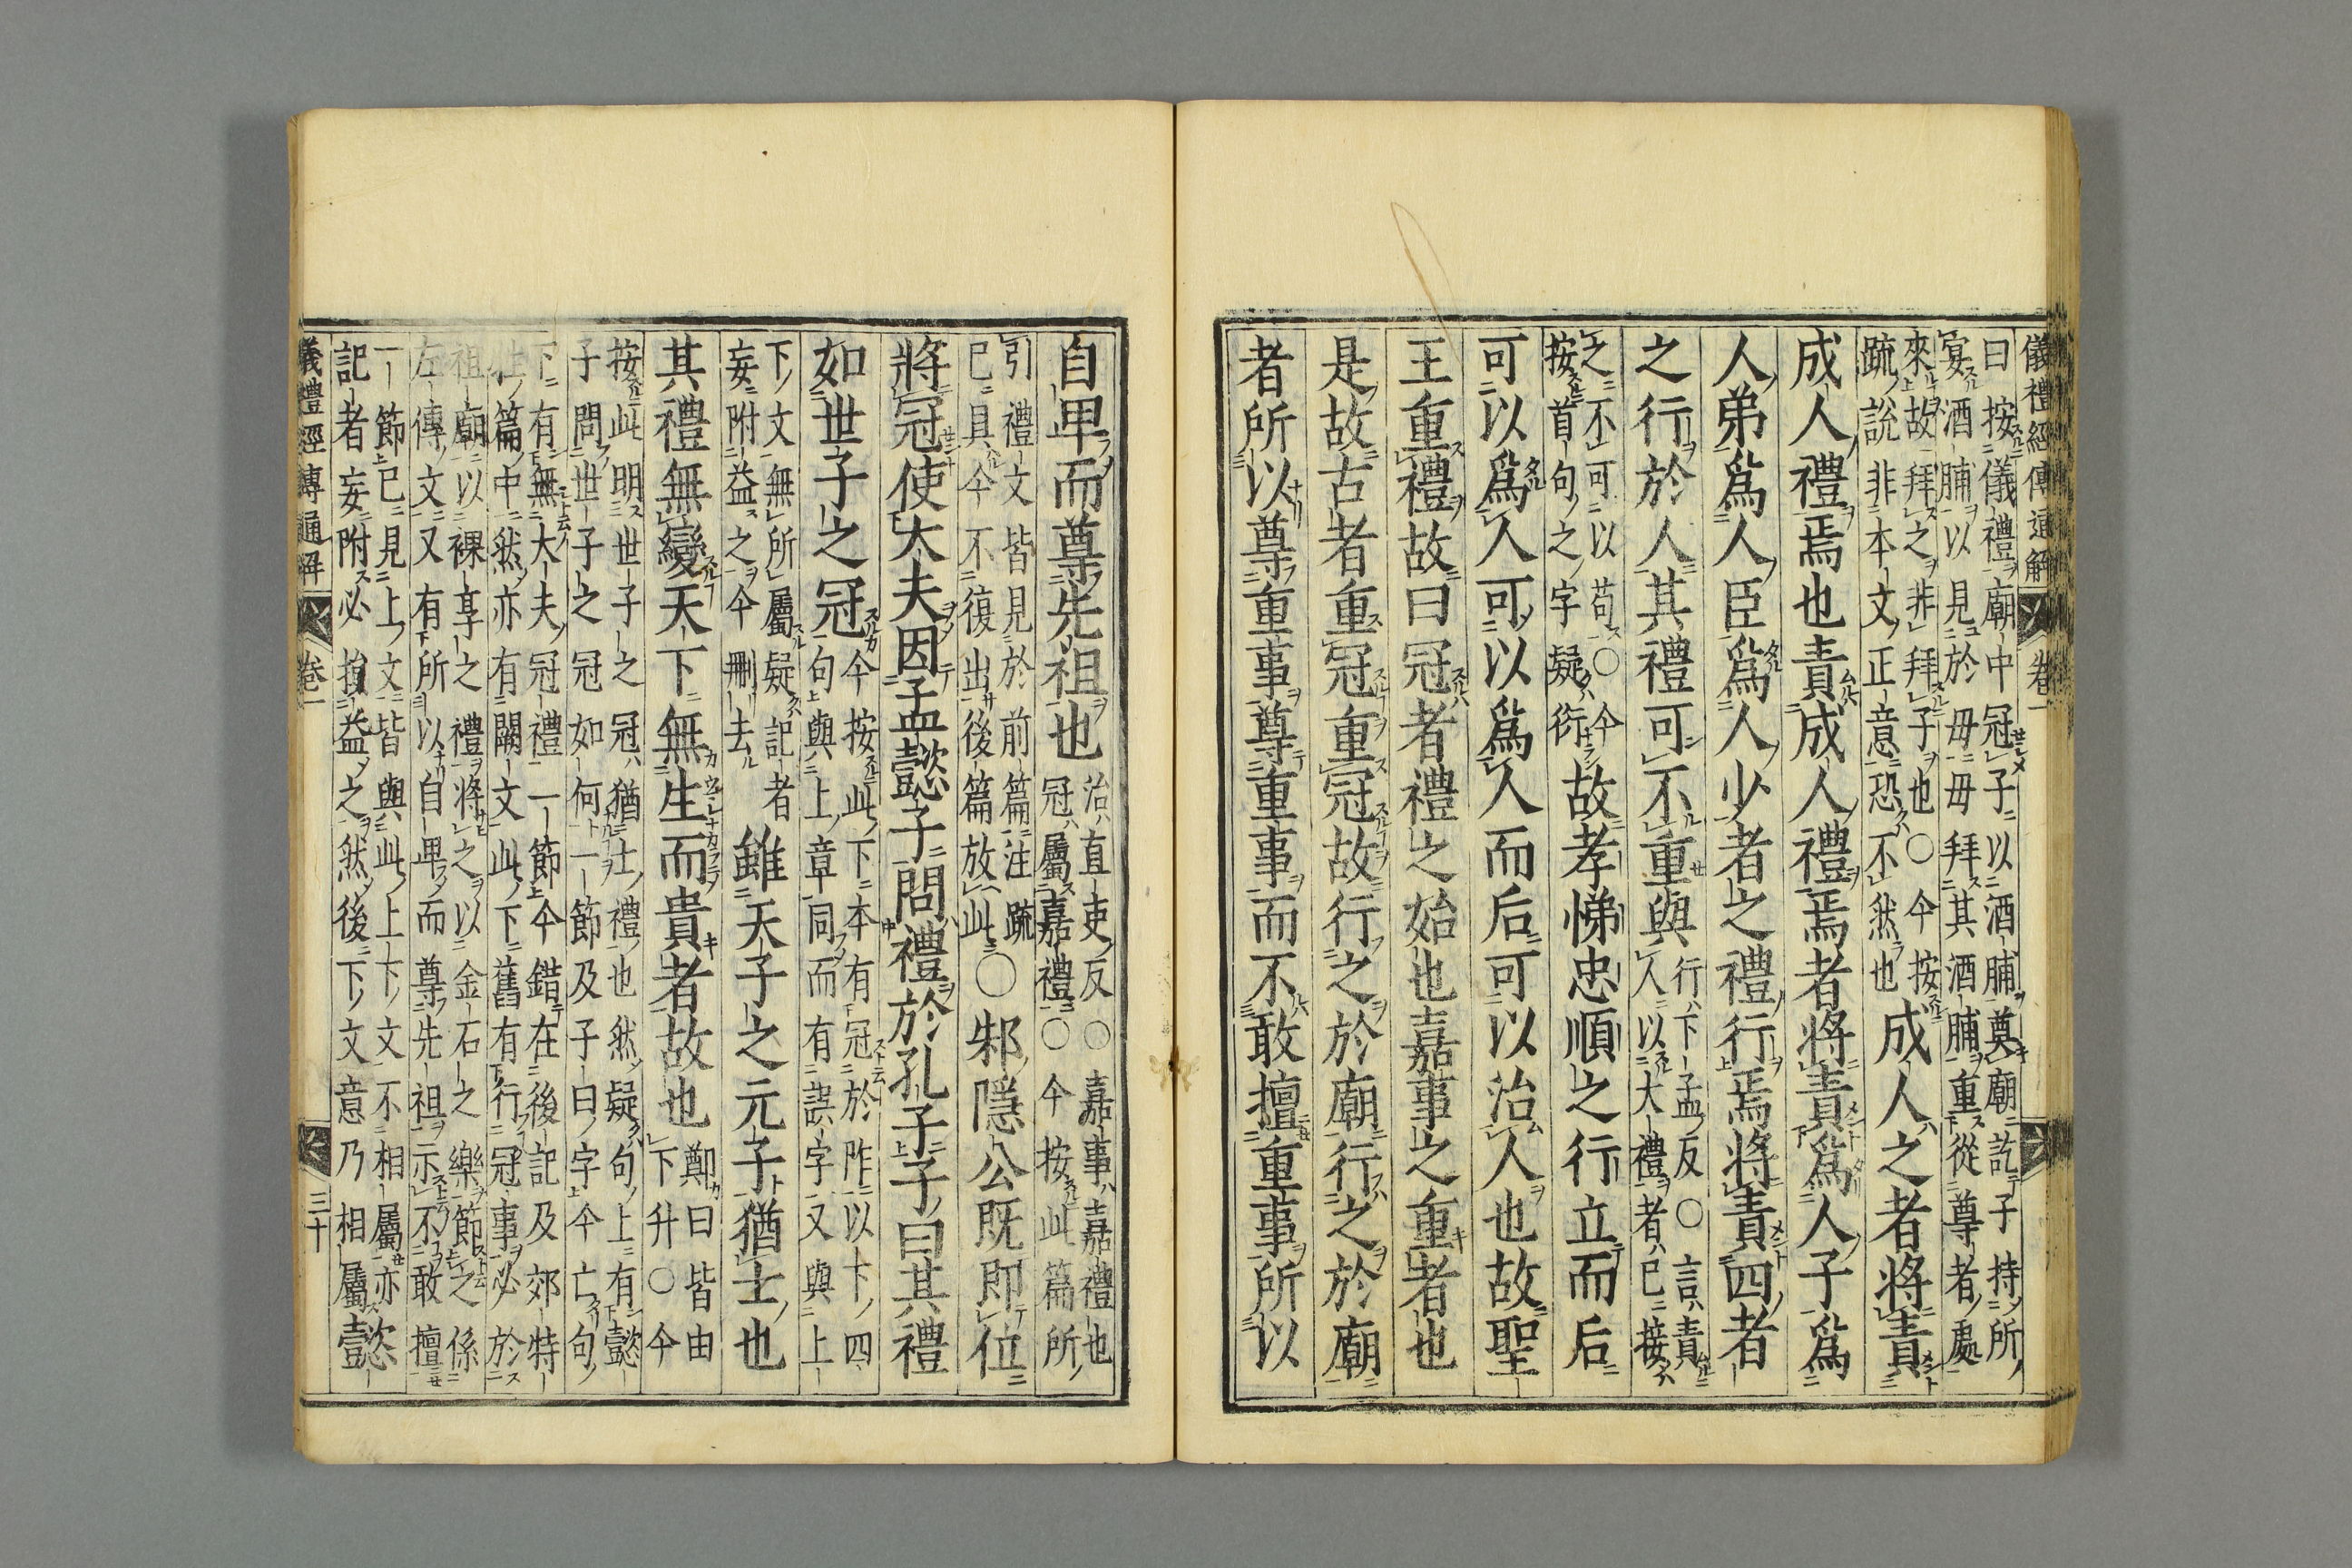 儀禮經傳通解 卷一
曰按儀禮廟中冠子以酒脯奠廟訖子持所
宴酒脯以見於毋毋拜其酒脯重從尊者處
來故拜之非拜子也○今按
疏說非本文正意恐不然也
成人之者將責
成人禮焉也責成人禮焉者將責爲人子爲
人弟爲人臣爲人少者之禮行焉將責四者
之行於人其禮可不重與
行下孟反○言責
人以大禮者已接
之不可以苟○今
按首句之字疑衍
故孝悌忠順之行立而后
可以爲人可以爲人而后可以治人也故聖
王重禮故曰冠者禮之始也嘉事之重者也
是故古者重冠重冠故行之於廟行之於廟
者所以尊重事尊重事而不敢擅重事所以
自卑而尊先祖也
治直吏反○嘉事嘉禮也
冠屬嘉禮○今按此篇所
引禮文皆見於前篇注疏
已具今不復出後篇放此
○邾隱公既即位
將冠使大夫因孟懿子問禮於孔子子曰其禮
如世子之冠
今按此下本有冠於阼以下四
句與上章同而有誤字又與上
下文無所屬疑記者
妄附益之今刪去
雖天子之元子猶士也
其禮無變天下無生而貴者故也
鄭曰皆由
下升○今
按此明世子之冠猶士禮也然疑句上有懿
子問世子之冠如何一節及子曰字今亡句
下有無大夫冠禮一節今錯在後記及郊特
牲篇中然亦有闕文此下舊有行冠事必於
祖廟以裸享之禮將之以金石之樂節之係
左傳文又有所以自卑而尊先祖示不敢擅
一節已見上文皆與此上下文不相屬亦
記者妄附必損益之然後下文意乃相屬懿
儀禮經傳通解 卷一 三十